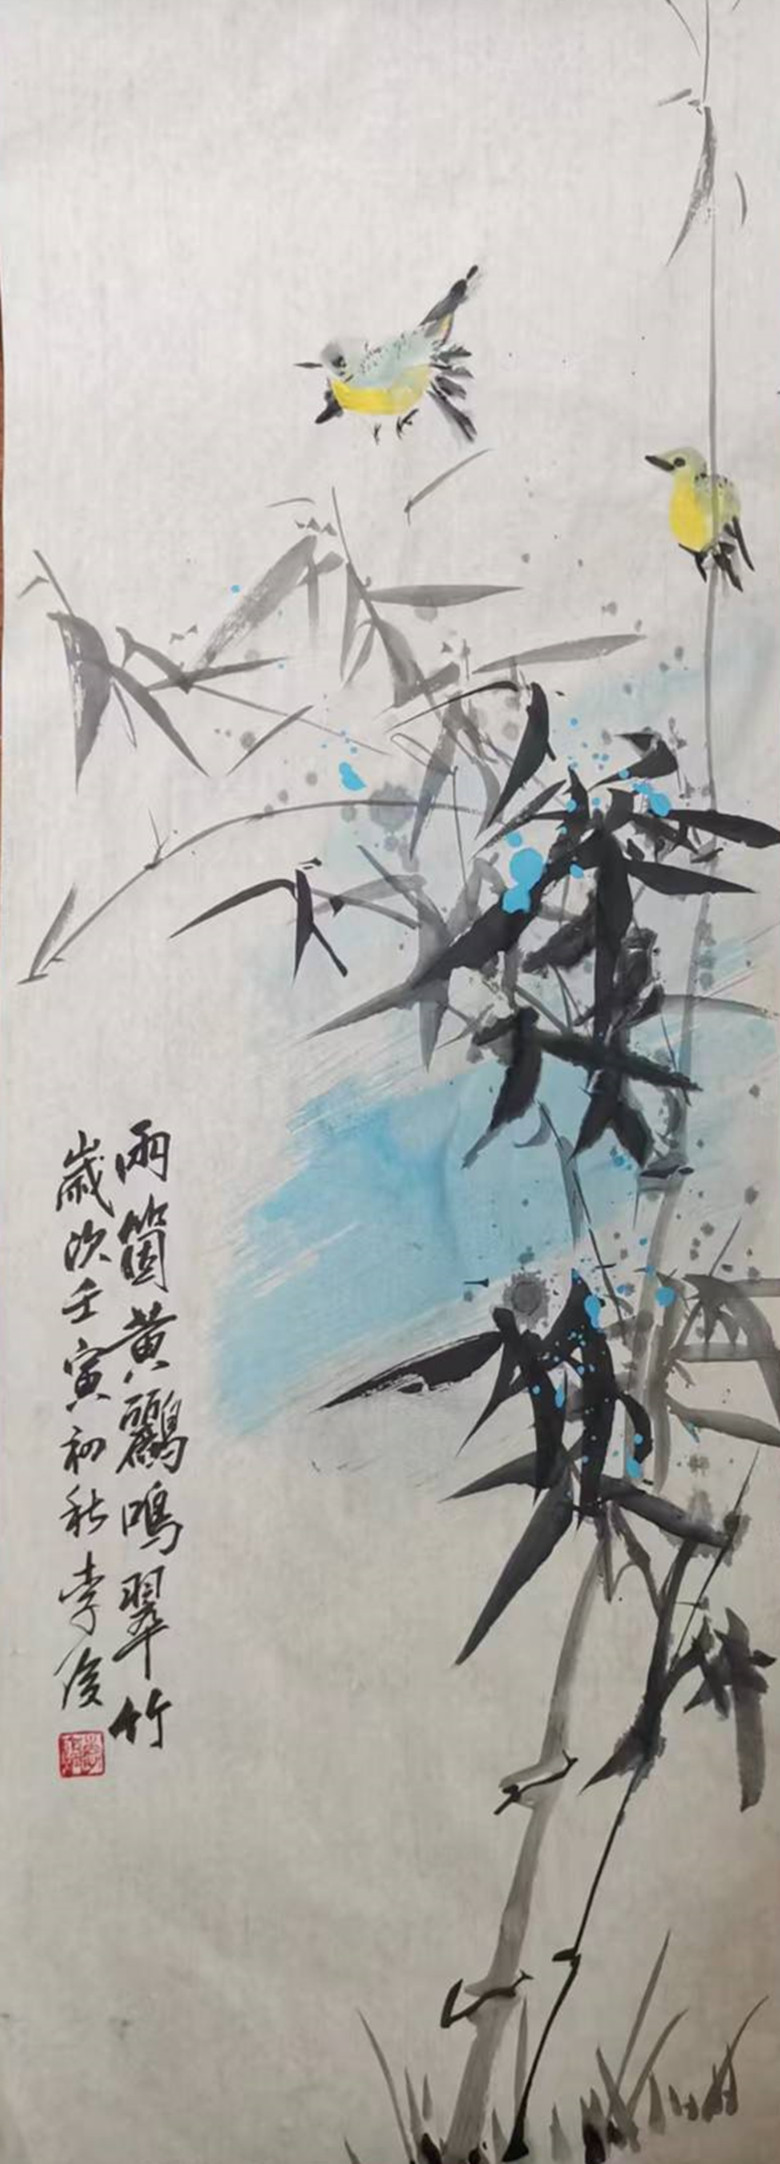 兩箇黃鸝鳴翠竹
歲次壬寅初秋李俊